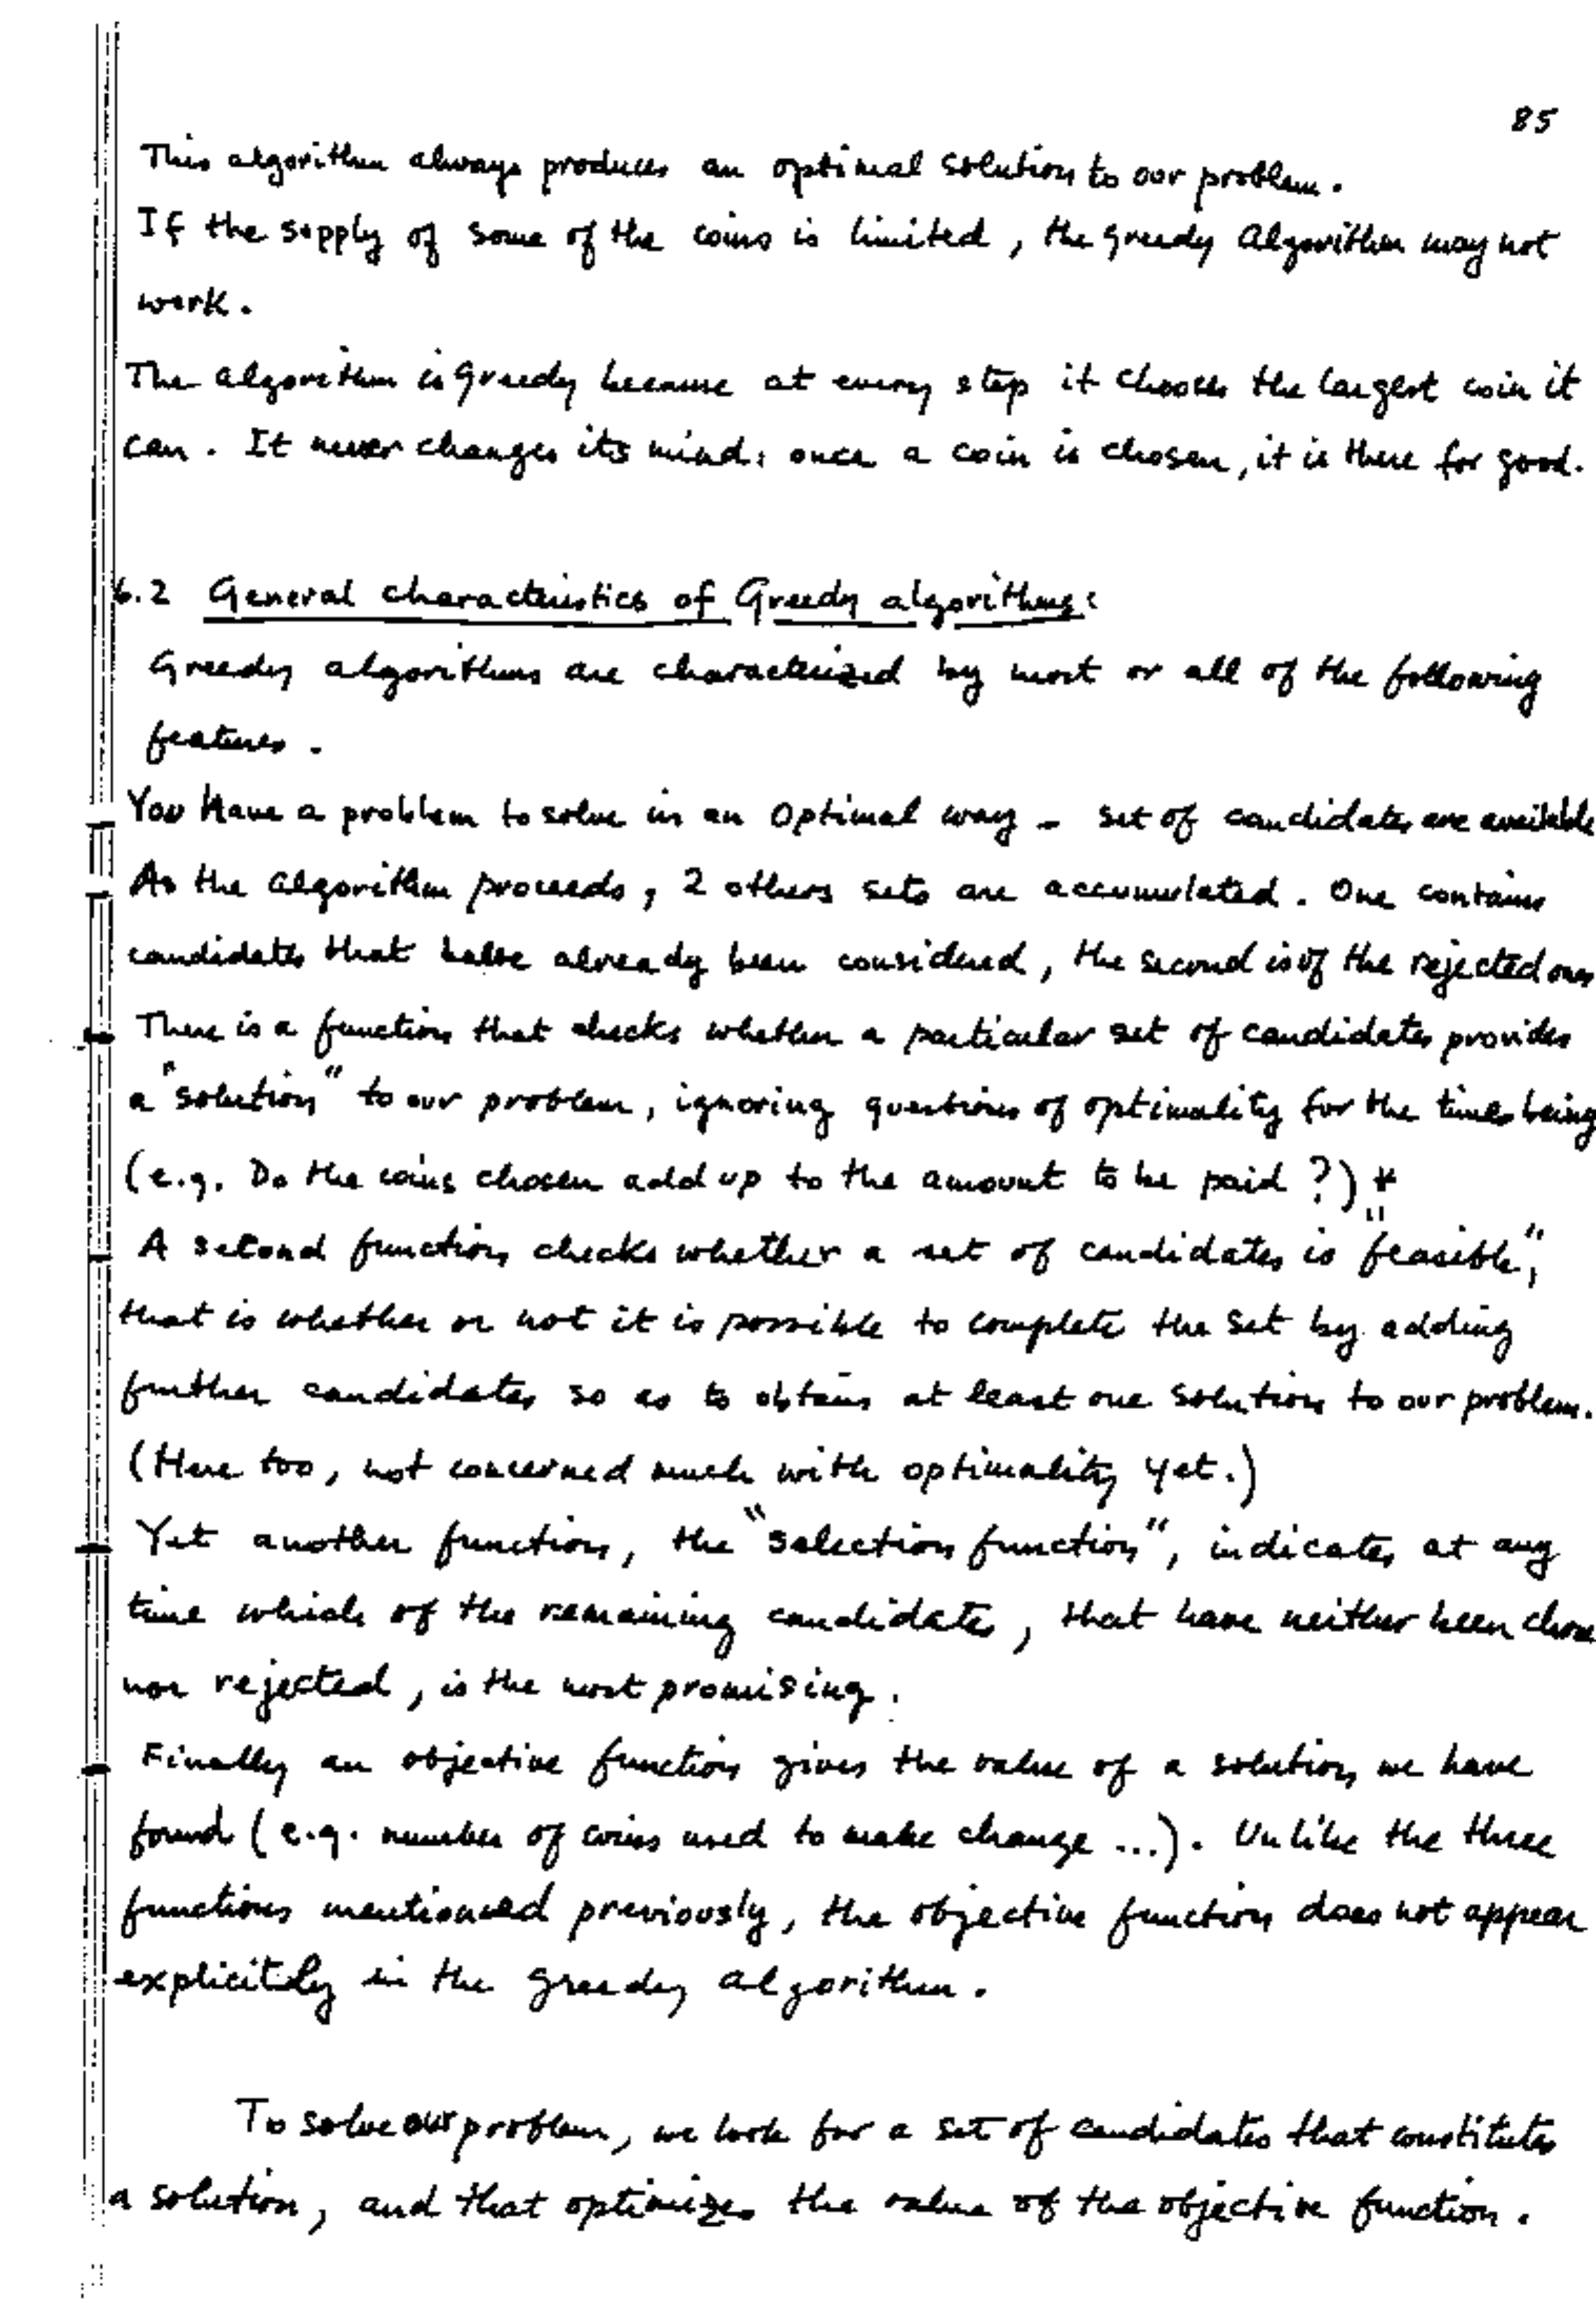 85
This algorithm always produces an optimal solution to our problem.
If the supply of some of the coins is limited, the greedy algorithm may not
work.
The algorithm is greedy because at every step it chooses the largest coin it
can. It never changes its mind: once a coin is chosen, it is there for good.
6.2 General characteristics of Greedy algorithms:
Greedy algorithms are characterized by most or all of the following
features.
You Have a problem to solve in an optimal way - set of candidates are available
As the algorithm proceeds, 2 others sets are accumulated. One contains
candidates that have already been considered, the second is of the rejected ones
There is a function that checks whether a particular set of candidates provides
a "solution" to our problem, ignoring questions of optimality for the time being
(e.g. Do the coins chosen add up to the amount to be paid ?) #
A second function checks whether a set of candidates is "feasible",
that is whether or not it is possible to complete the set by adding
further candidates so as to obtain at least one solution to our problem.
(Here too, not concerned much with optimality yet.)
Yet another function, the "selection function", indicates at any
time which of the remaining candidates, that have neither been chose
nor rejected, is the most promising.
Finally an objective function gives the value of a solution we have
found (e.g. number of coins used to make change ...). Unlike the three
functions mentioned previously, the objective function does not appear
explicitly in the greedy algorithm.
To solve our problem, we look for a set of candidates that constitutes
a solution, and that optimizes the value of the objective function.